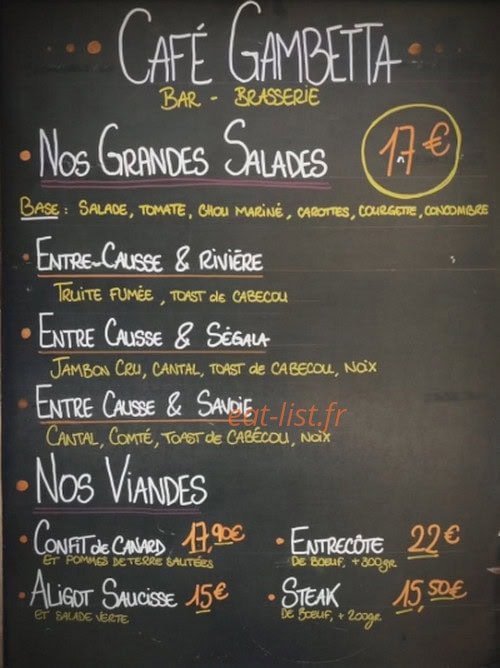 CAFÉ GAMBETTA
BAR - BRASSERIE
NOS GRANDES SALADES 17€
BASE : SALADE, TOMATE, CHOU MARINÉ, CAROTTES, COURGETTE, CONCOMBRE
ENTRE-CAUSSE & RIVIÉRE
TRUITE FUMÉE, TOAST de CABECOU
ENTRE CAUSSE & SÉGALA
JAMBON CRU, CANTAL, TOAST de CABECOU, NOIX
ENTRE CAUSSE & SAVOIE
eat-list.fr
CANTAL, COMTÉ, TOAST de CABÉCOU, NOIX
NOS VIANDES
CONFIT de CANARD 17,90€
ET POMMES DE TERRE SAUTÉES
ENTRECÔTE 22€
DE BOEUF, + 300gr
ALIGOT SAUCISSE 15€
ET SALADE VERTE
STEAK 15,50€
DE BOEUF, + 200gr